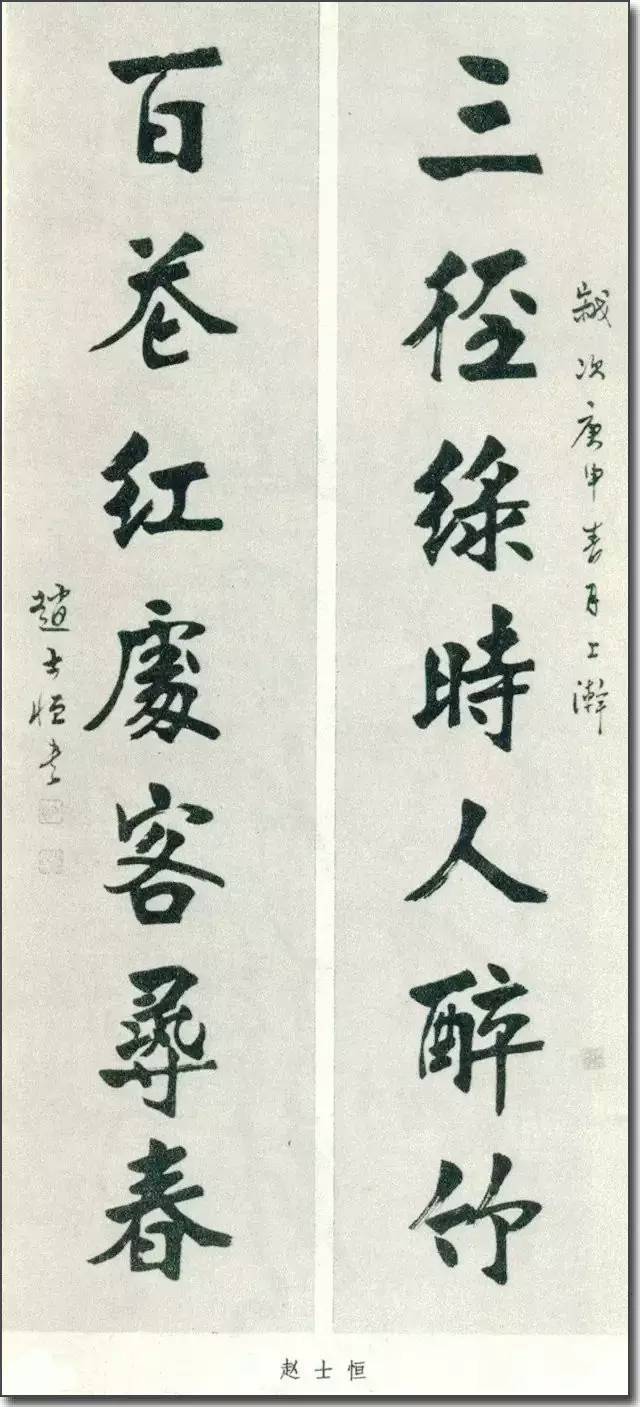 歲次庚申春月上澣
三徑綠時人醉竹
百花紅處客尋春
趙士恒書
赵士恒